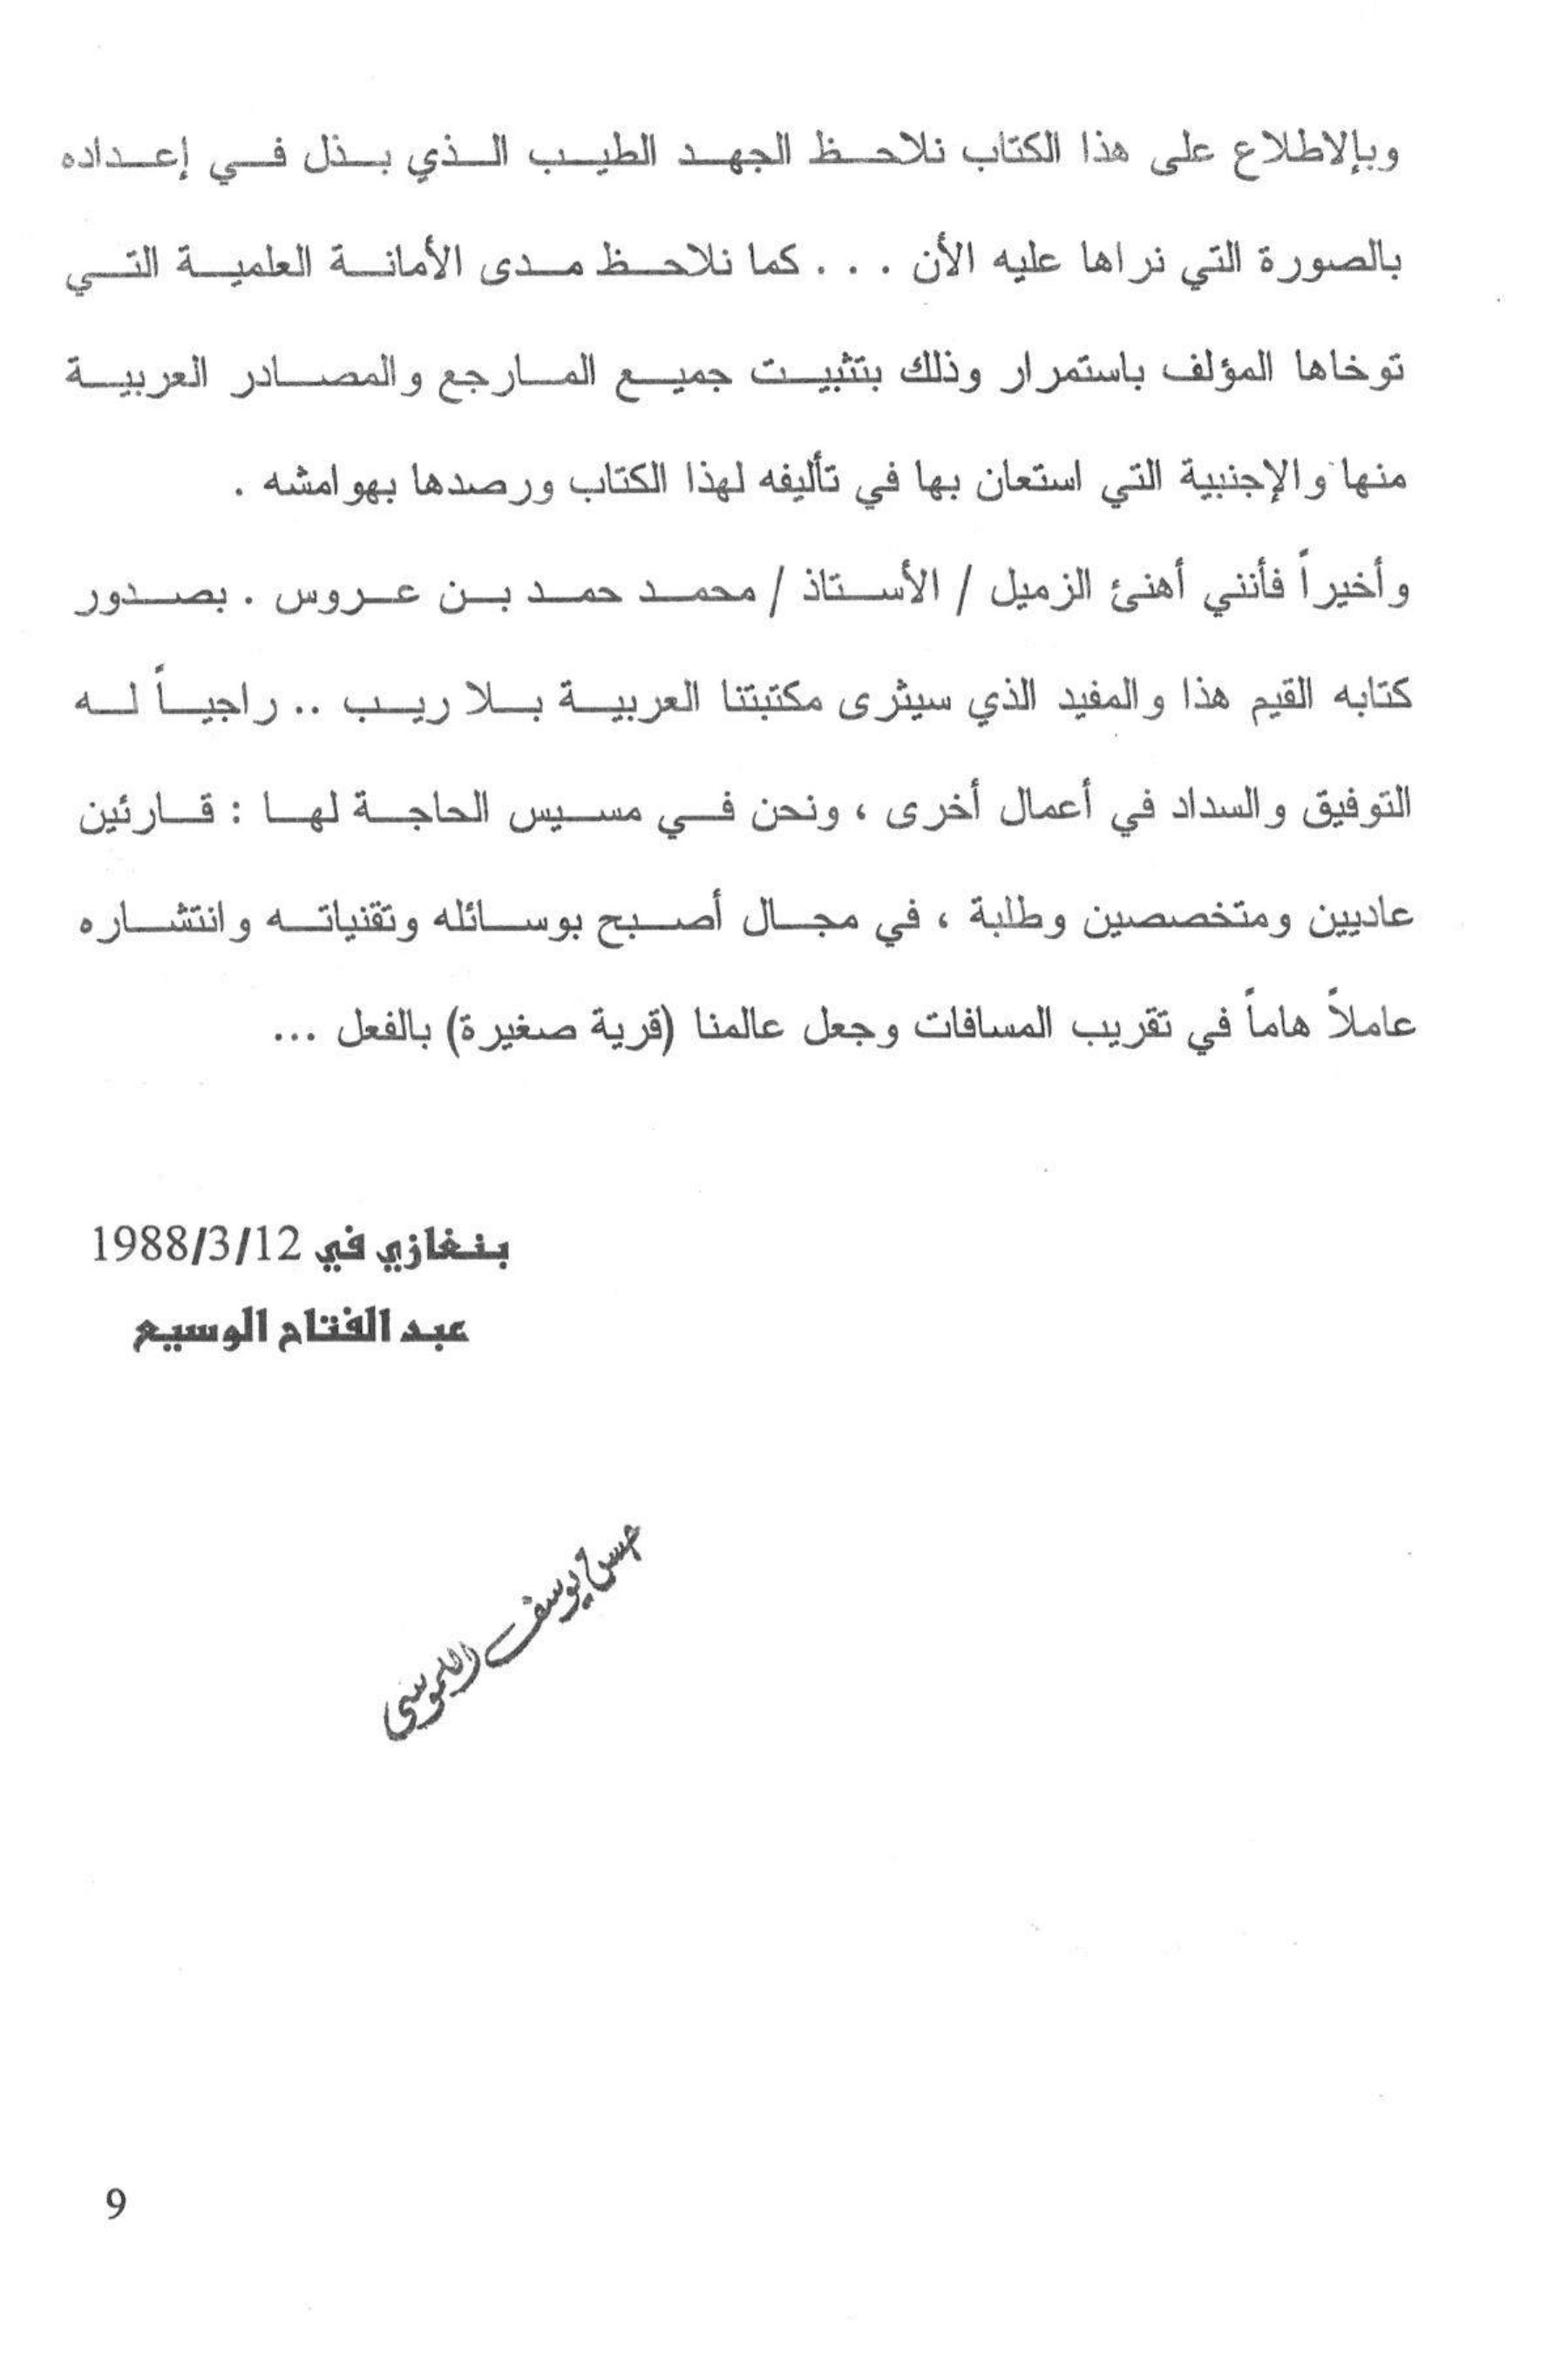 وبإلاطلاع على هذا الكتاب نلاحظ الجهد الطيب الذي بذل في إعداده
بالصورة التي نراها عليه الأن . . . كما نلاحظ مدى الأمانة العلمية التي
توخاها المؤلف باستمرار وذلك بتثبيت جميع المارجع والمصادر العربية
منها والإجنبية التي استعان بها في تأليفه لهذا الكتاب ورصدها بهوامشه .
وأخيراً فأنني أهنئ الزميل / الأستاذ / محمد حمد بن عروس . بصدور
كتابه القيم هذا والمفيد الذي سيثرى مكتبتنا العربية بلا ريب .. راجياً له
التوفيق والسداد في أعمال أخرى ، ونحن في مسيس الحاجة لها : قارئين
عاديين ومتخصصين وطلبة ، في مجال أصبح بوسائله وتقنياته وانتشاره
عاملاً هاماً في تقريب المسافات وجعل عالمنا (قرية صغيرة) بالفعل ...
بنغازي في 1988/3/12
عبد الفتاح الوسيع
يوسف
9